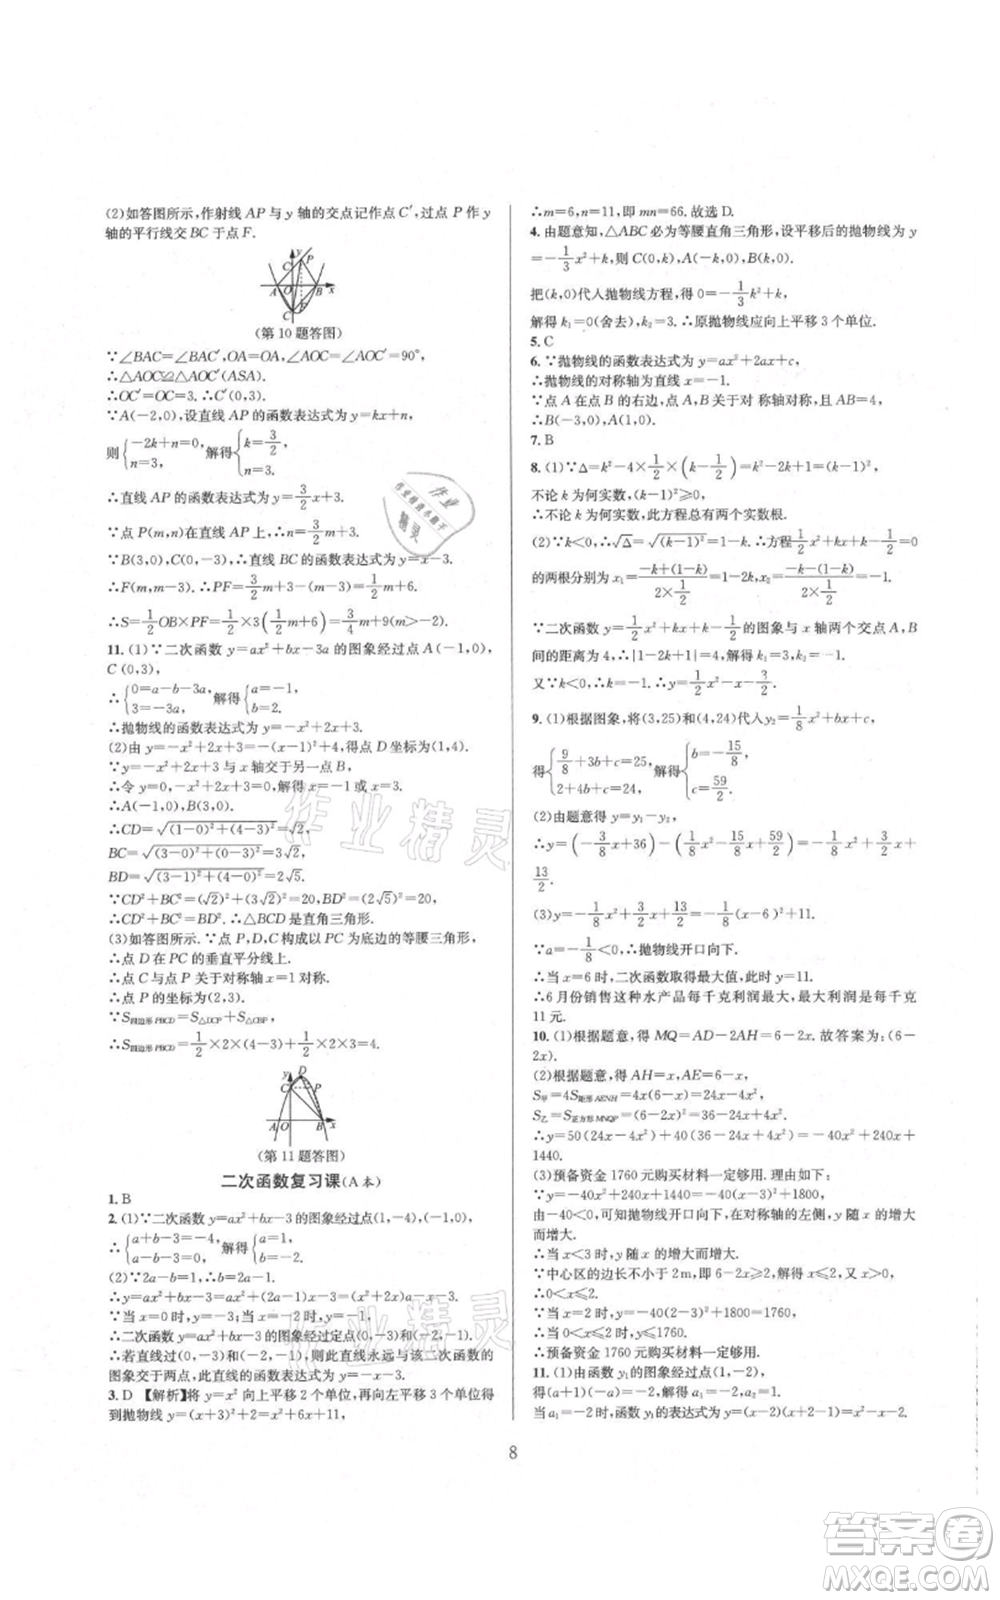 (2)如答图所示,作射线 AP 与 y 轴的交点记作点 C′,过点 P 作 y
轴的平行线交 BC 于点 F.
y
C′
P
A
O
B
x
C
F
(第 10 题答图)
∵∠BAC=∠BAC′,OA=OA,∠AOC=∠AOC′=90°,
∴△AOC≌△AOC′(ASA).
∴OC′=OC=3.∴C′(0,3).
∵A(-2,0),设直线 AP 的函数表达式为 y=kx+n,
则{-2k+n=0, n=3, 解得{k=3/2, n=3.
∴直线 AP 的函数表达式为 y=3/2x+3.
∵点 P(m,n)在直线 AP 上,∴n=3/2m+3.
∵B(3,0),C(0,-3),∴直线 BC 的函数表达式为 y=x-3.
∴F(m,m-3).∴PF=3/2m+3-(m-3)=1/2m+6.
∴S=1/2OB×PF=1/2×3(1/2m+6)=3/4m+9(m>-2).
11. (1)∵二次函数 y=ax²+bx-3a 的图象经过点 A(-1,0),
C(0,3),
∴{0=a-b-3a, 3=-3a, 解得{a=-1, b=2.
∴抛物线的函数表达式为 y=-x²+2x+3.
(2)由 y=-x²+2x+3=-(x-1)²+4,得点 D 坐标为(1,4).
∵y=-x²+2x+3 与 x 轴交于另一点 B,
∴令 y=0,得-x²+2x+3=0,解得 x=-1 或 x=3.
∴A(-1,0),B(3,0).
∴CD=√((1-0)²+(4-3)²)=√2,
BC=√((3-0)²+(0-3)²)=3√2,
BD=√((3-1)²+(0-4)²)=2√5.
∵CD²+BC²=(√2)²+(3√2)²=20,BD²=(2√5)²=20,
∴CD²+BC²=BD².∴△BCD 是直角三角形.
(3)如答图所示.∵点 P,D,C 构成以 PC 为底边的等腰三角形,
∴点 D 在 PC 的垂直平分线上.
∴点 C 与点 P 关于对称轴 x=1 对称.
∴点 P 的坐标为(2,3).
∵S四边形PBCD=S△DCP+S△CBP,
∴S四边形PBCD=1/2×2×(4-3)+1/2×2×3=4.
y
D
C
P
A
O
B
x
(第 11 题答图)
二次函数复习课(A 本)
1. B
2. (1)∵二次函数 y=ax²+bx-3 的图象经过点(1,-4),(-1,0),
∴{a+b-3=-4, a-b-3=0, 解得{a=1, b=-2.
(2)∵2a-b=1,∴b=2a-1.
∴y=ax²+bx-3=ax²+(2a-1)x-3=ax²+2ax-x-3.
∵当 x=0 时,y=-3;当 x=-2 时,y=-1,
∴二次函数 y=ax²+bx-3 的图象过定点(0,-3),(-2,-1).
∴若直线过(0,-3),(-2,-1),则此直线永远与二次函数的
图象交于两点,此直线的函数表达式为 y=-x-3.
3. D 【解析】将 y=x² 向上平移 2 个单位,再向左平移 3 个单位得
到抛物线 y=(x+3)²+2=x²+6x+11,
∴m=6,n=11,即 mn=66.故选 D.
4. 由题意知,△ABC 必为等腰直角三角形,设平移后的抛物线为 y
=-1/3x²+k,则 C(0,k),A(-k,0),B(k,0).
把(k,0)代人抛物线方程,得 0=-1/3k²+k,
解得 k₁=0(舍去),k₂=3.∴原抛物线应向上平移 3 个单位.
5. C
6. ∵抛物线的函数表达式为 y=ax²+2ax+c,
∴抛物线的对称轴为直线 x=-1.
∵点 A 在点 B 的右边,点 A,B 关于对 称轴对称,AB=4,
∴B(-3,0),A(1,0).
7. B
8. (1)∵Δ=k²-4×1/2×(k-1/2)=k²-2k+1=(k-1)²,
不论 k 为何实数,(k-1)²≥0,
∴不论 k 为何实数,此方程总有两个实数根.
(2)∵k<0,∴√Δ=√((k-1)²)=1-k.∴方程1/2x²+kx+k-1/2=0
的两根分别为 x₁=(-k+(1-k))/(2×1/2)=1-2k,x₂=(-k-(1-k))/(2×1/2)=-1.
∵二次函数 y=1/2x²+kx+k-1/2的图象与 x 轴两个交点 A,B
间的距离为 4,∴|1-2k+1|=4,解得 k₁=3,k₂=-1.
又∵k<0,∴k=-1.∴y=1/2x²-x-3/2.
9. (1)根据图象,将(3,25)和(4,24)代人y₂=1/8x²+bx+c,
得{9/8+3b+c=25, 2+4b+c=24, 解得{b=-15/8, c=59/2.
(2)由题意得 y=y₁-y₂,
∴y=(-3/8x+36)-(1/8x²-15/8x+59/2)=-1/8x²+3/2x+
13/2.
(3)y=-1/8x²+3/2x+13/2=-1/8(x-6)²+11,
∵a=-1/8<0,∴抛物线开口向下.
∴当 x=6 时,二次函数取得最大值,此时 y=11.
∴6 月份销售这种水产品每千克利润最大,最大利润是每千克
11 元.
10. (1)根据题意,得 MQ=AD-2AH=6-2x.故答案为:(6-
2x).
(2)根据题意,得 AH=x,AE=6-x,
S甲=4S矩形AENH=4x(6-x)=24x-4x²,
S乙=S正方形MNQP=(6-2x)²=36-24x+4x².
∴y=50(24x-4x²)+40(36-24x+4x²)=-40x²+240x+
1440.
(3)预备资金 1760 元购买材料一定够用.理由如下:
∵y=-40x²+240x+1440=-40(x-3)²+1800,
由-40<0,可知抛物线开口向下,在对称轴的左侧,y 随 x 的增大
而增大.
∴当 x<3 时,y 随 x 的增大而增大.
∵中心区的边长不小于 2 m,即 6-2x≥2,解得 x≤2,又 x>0,
∴0<x≤2.
∵当 x=2 时,y=-40(2-3)²+1800=1760,
∴当 0<x≤2 时,y≤1760.
∴预备资金 1760 元购买材料一定够用.
11. (1)由函数 y₁ 的图象经过点(1,-2),
得(a+1)(-a)=-2,解得 a₁=-2,a₂=1.
当 a₁=-2 时,函数 y₁ 的表达式为 y=(x-2)(x+2-1)=x²-x-2.
8
作业精灵
作业精灵
作业
精灵
答案卷
MXQE.COM